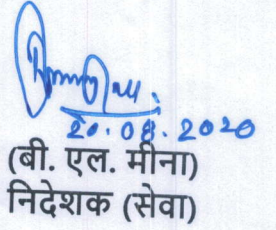 20.08.2020
(बी. एल. मीना)
निदेशक (सेवा)